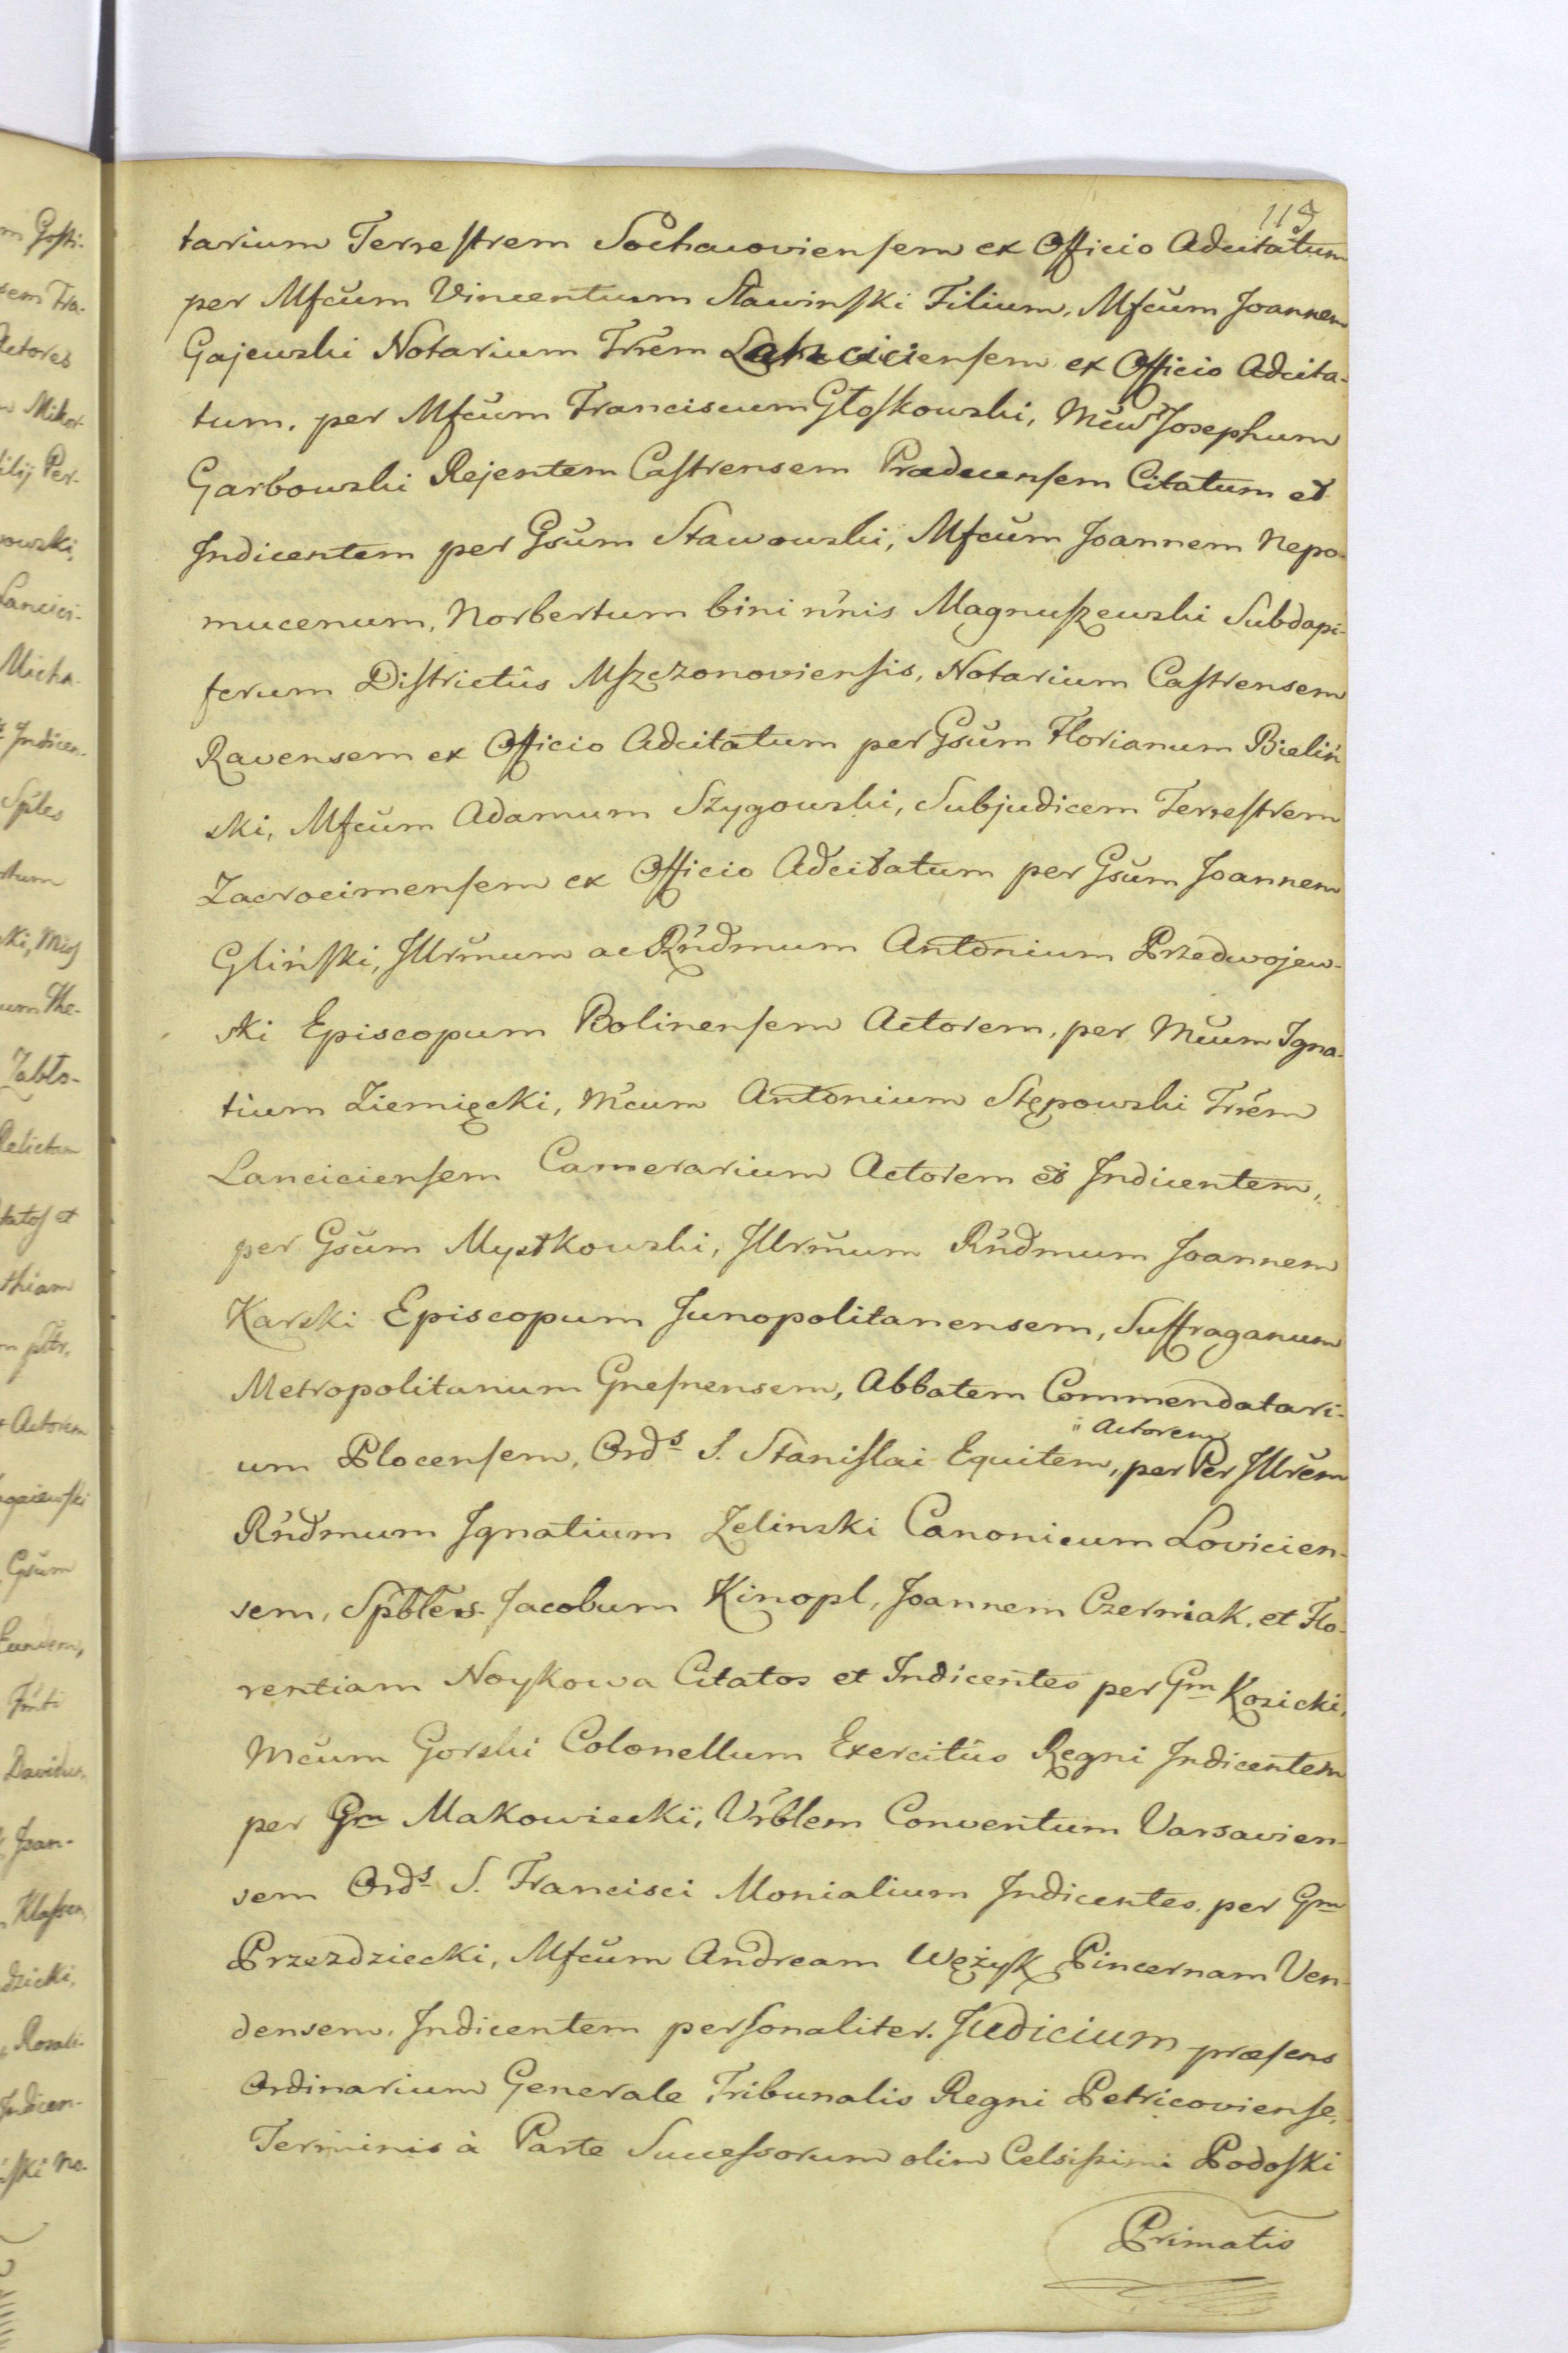 119
tarium Terrestrem Sochacoviensem ex Officio Adcitatum
per Mfcum Vincentium Sławinski Filium, Mfcum Joannem
Gajewski Notarium Trrem Lanciciensem ex Officio Adcita-
tum, per Mfcum Franciscum Głoskowski, Mcum Josephum
Garbowski Rejentem Castrensem Praducensem Citatum et
Indicentem per Gsum Stawowski, Mfcum Joannem Nepo-
mucenum, Norbertum bini nnis Magnuszewski Subdapi-
ferum Districtûs Mszczonoviensis, Notarium Castrensem
Ravensem ex Officio Adcitatum per Gsum Florianum Bieliń
ski, Mfcum Adamum Szygowski, Subjudicem Terrestrem
Zacrocimensem ex Officio Adcitatum per Gsum Joannem
Gliński, Illrmum ac Rndmum Antonium Przedwojew-
ski Episcopum Bolinensem Actorem, per Mcum Igna-
tium Ziemięcki, Mcum Antonium Stępowski Trrem
Lanciciensem Camerarium Actorem et Indicentem,
per Gsum Mystkowski, Illrmum Rndmum Joannem
Karski Episcopum Junopolitanensem, Suffraganum
Metropolitanum Gnesnensem, Abbatem Commendatari-
um Plocensem, Ords S. Stanislai Equitem, Actorem per Per Illrem
Rndmum Ignatium Zelinski Canonicum Lovicien-
sem, Spbles Jacobum Kinopl, Joannem Czerniak, et Flo-
rentiam Noykowa Citatos et Indicentes per Gm Kozicki,
Mcum Gorski Colonellum Exercitûs Regni Indicentem
per Gm Makowiecki, Vrblem Conventum Varsavien-
sem Ords S. Francisci Monialium Indicentes, per Gm
Przezdziecki, Mfcum Andream Wężyk Pincernam Ven-
densem, Indicentem personaliter. Judicium præsens
Ordinarium Generale Tribunalis Regni Petricoviense,
Terminis à Parte Successorum olim Celsissimi Podoski
Primatis